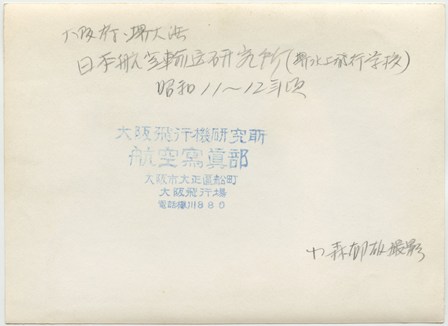 大阪府堺大浜
日本航空輸送研究所(堺水上飛行学校)
昭和11〜12年頃
大阪飛行機研究所
航空寫眞部
大阪市大正區船町
大阪飛行場
電話櫻川880
森 撮影